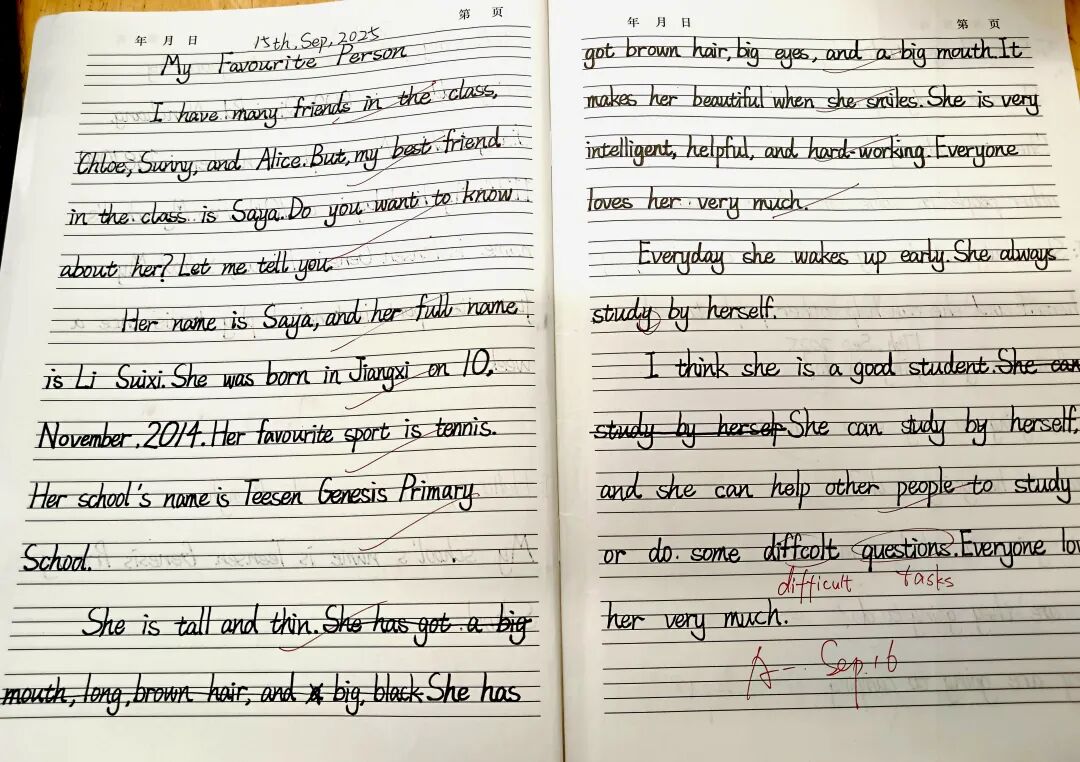 第 页
年 月 日
15th, Sep, 2025
My Favourite Person
I have many friends in the class,
Chloe, Sunny, and Alice. But, my best friend
in the class is Saya. Do you want to know
about her? Let me tell you.
Her name is Saya, and her full name
is Li Suixi. She was born in Jiangxi on 10,
November, 2014. Her favourite sport is tennis.
Her school's name is Teesen Genesis Primary
School.
She is tall and thin. She has got a big
mouth, long, brown hair, and big, black She has
年 月 日
第 页
got brown hair, big eyes, and a big mouth. It
makes her beautiful when she smiles. She is very
intelligent, helpful, and hard-working. Everyone
loves her very much.
Everyday she wakes up early. She always
study by herself.
I think she is a good student. She can
study by herself She can study by herself,
and she can help other people to study
or do some diffcolt questions. Everyone lov
difficult tasks
her very much.
A- Sep.16